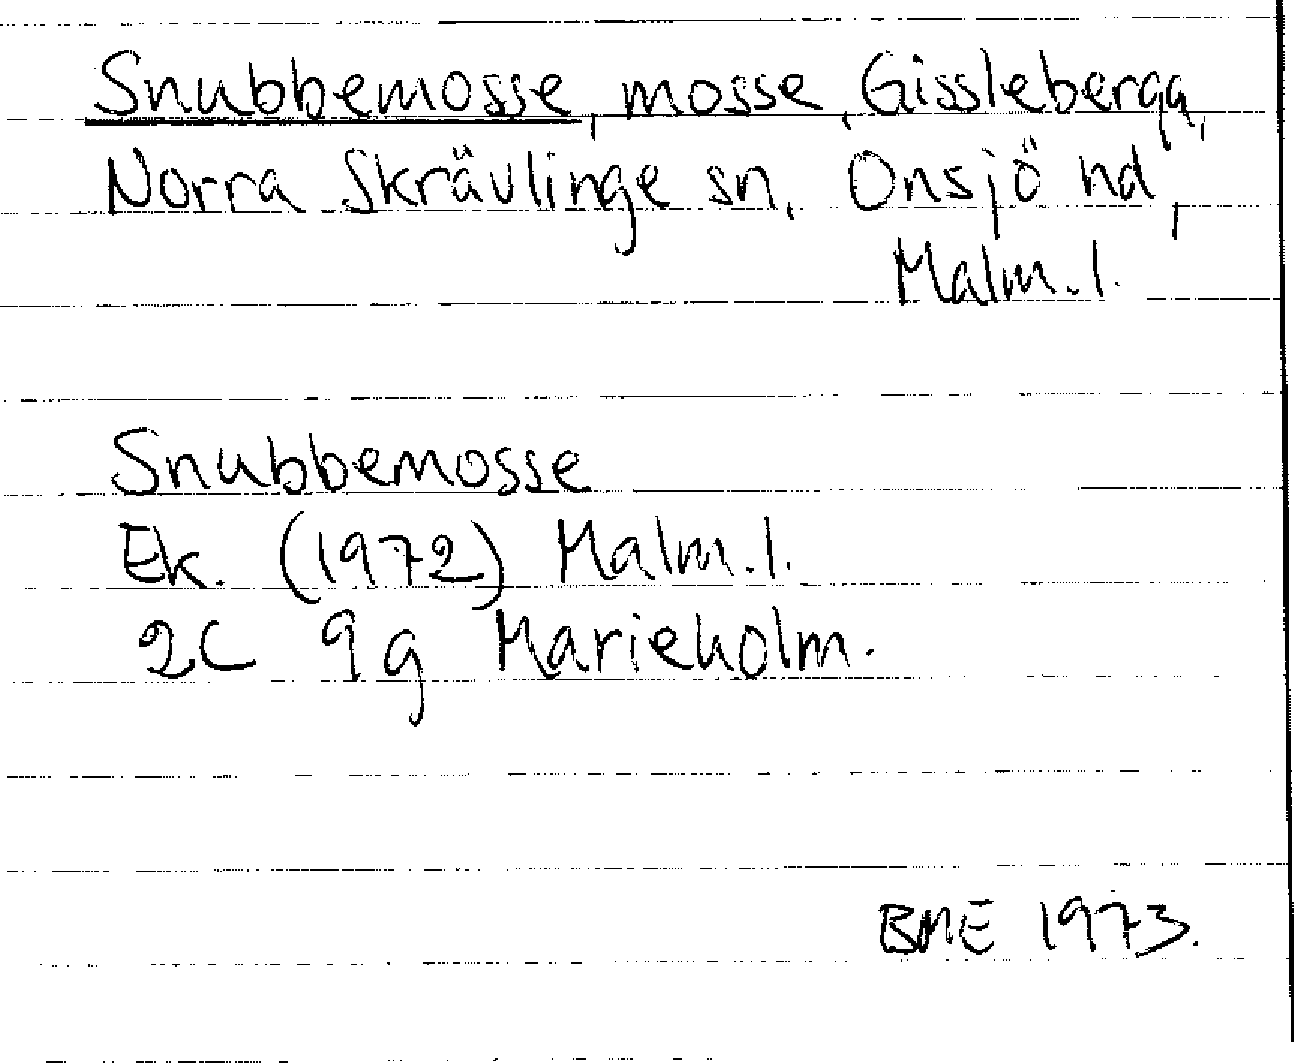 Snubbemosse, mosse, Gissleberga,
Norra Skrävlinge sn, Onsjö hd,
Malm.l.
Snubbemosse
Ek. (1972) Malm.l.
2C 9g Marieholm.
BME 1973.